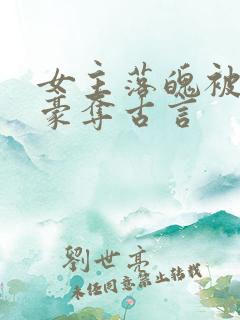 女主落魄被
豪夺古言
劉世亮
未经同意禁止转载